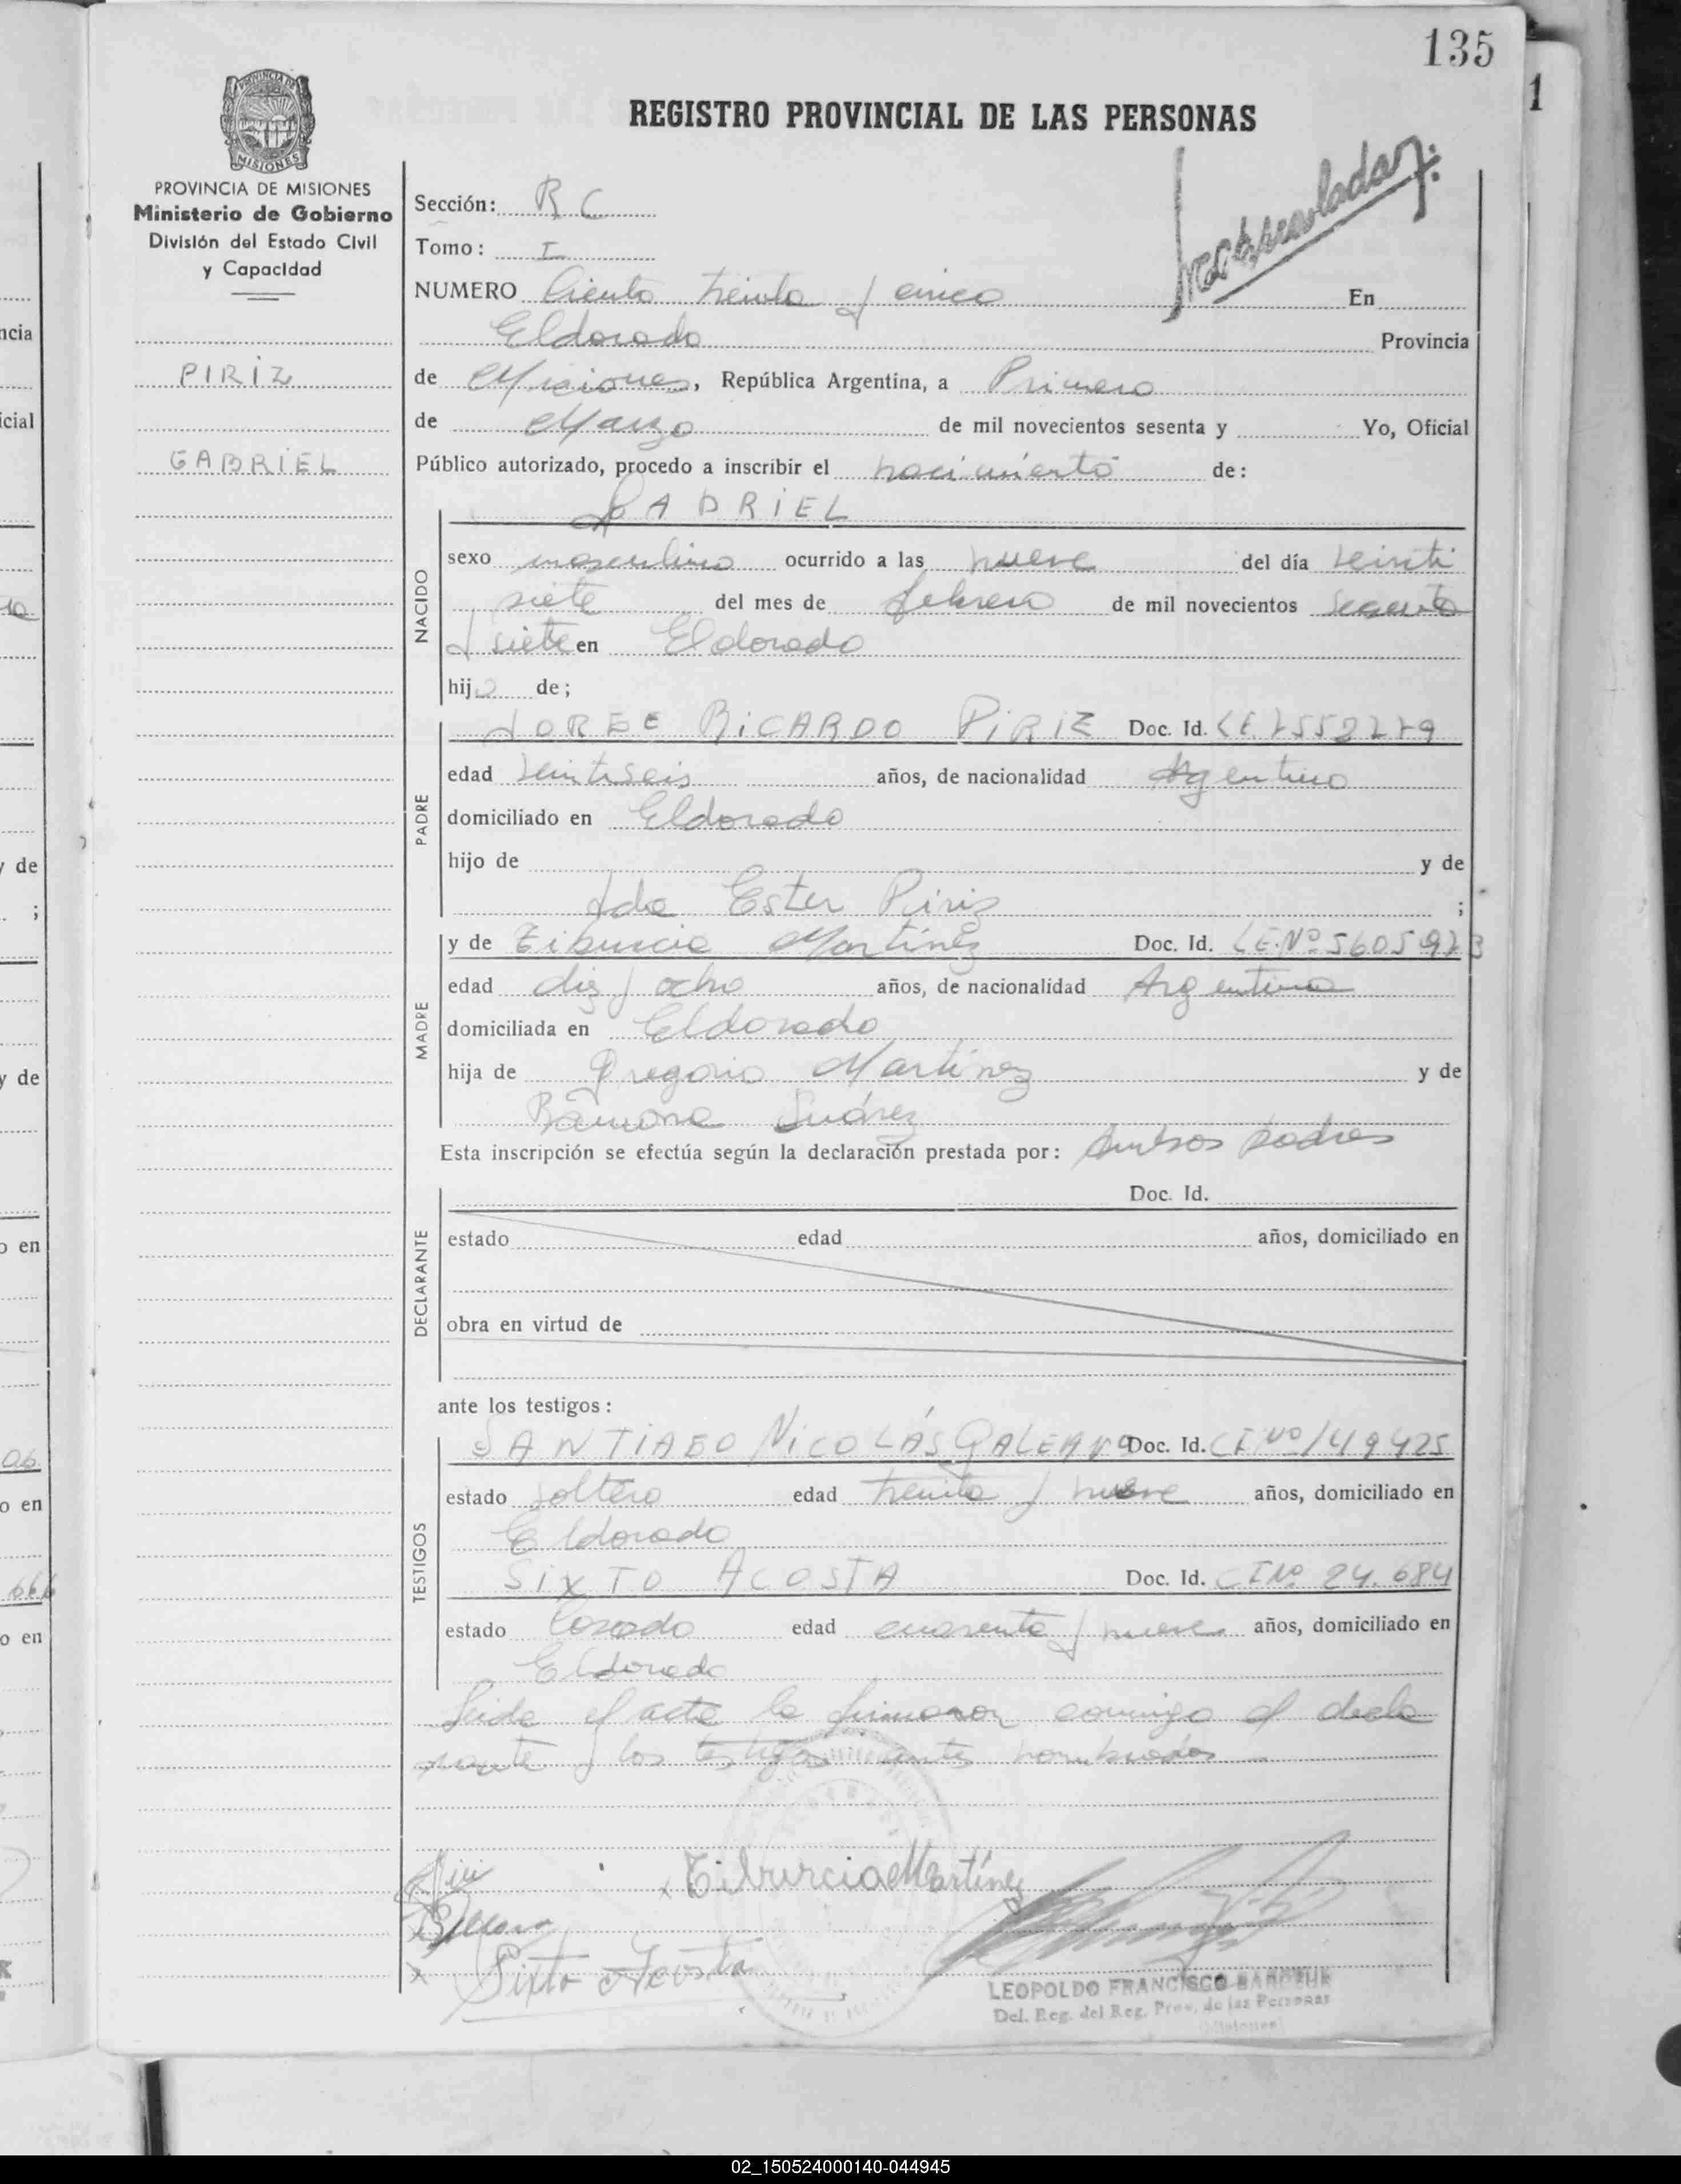 135
1
REGISTRO PROVINCIAL DE LAS PERSONAS
PROVINCIA DE MISIONES
Ministerio de Gobierno
División del Estado Civil
y Capacidad
PIRIZ
GABRIEL
Sección: R C
Tomo: I
NUMERO Ciento treinta y cinco En
Eldorado Provincia
de Misiones, República Argentina, a Primero
de Marzo de mil novecientos sesenta y Yo, Oficial
Público autorizado, procedo a inscribir el nacimiento de:
GABRIEL
NACIDO
sexo masculino ocurrido a las nueve del día veinti
siete del mes de febrero de mil novecientos sesenta
y siete en Eldorado
hijo de;
PADRE
JORGE RICARDO PIRIZ Doc. Id.
edad veintiseis años, de nacionalidad Argentino
domiciliado en Eldorado
hijo de y de
Ester Piriz ;
MADRE
y de Tiburcia Martínez Doc. Id. LE.Nº
edad diez y ocho años, de nacionalidad Argentina
domiciliada en Eldorado
hija de Gregorio Martínez y de
Ramona Suárez
Esta inscripción se efectúa según la declaración prestada por: Ambos padres
DECLARANTE
Doc. Id.
estado edad años, domiciliado en
obra en virtud de
ante los testigos:
TESTIGOS
SANTIAGO NICOLÁS GALEANO Doc. Id. CI Nº 149425
estado soltero edad treinta y nueve años, domiciliado en
Eldorado
SIXTO ACOSTA Doc. Id. CI Nº 24.684
estado Casado edad cuarenta y nueve años, domiciliado en
Eldorado
Leida el acta la firmaron conmigo el decla
rante y los testigos antes nombrados
Tiburcia Martínez
x Sixto Acosta
LEOPOLDO FRANCISCO
Del. Reg. del Reg. Prov. de las Personas
(Misiones)
02_150524000140-044945